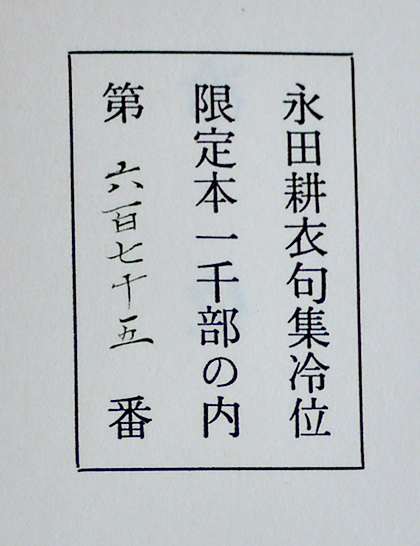 永田耕衣句集冷位
限定本一千部の内
第六百七十五番